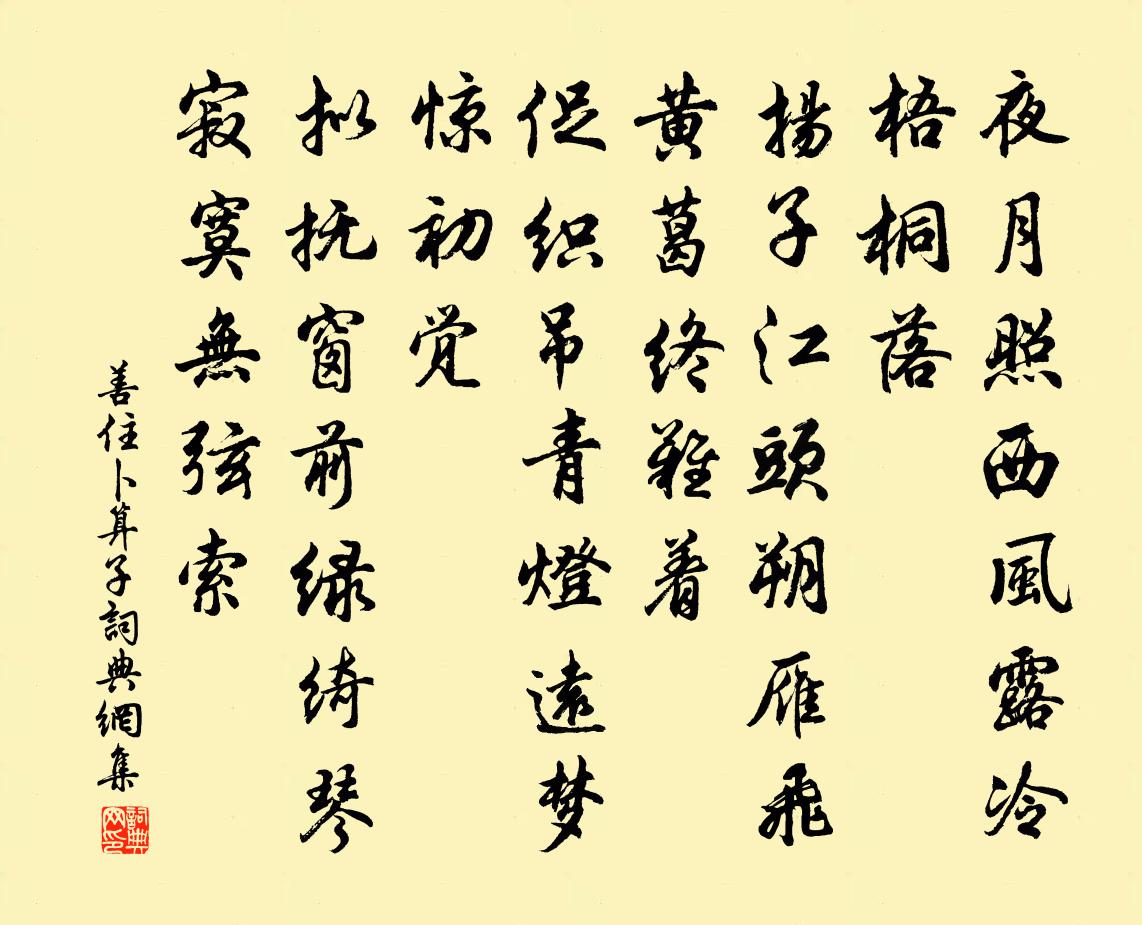 夜月照西風露冷
梧桐落
揚子江頭朔雁飛
黄葛终難着
促织吊青燈遠梦
惊初觉
拟抚窗前绿绮琴
寂寞無弦索
善住卜算子詞典網集
詞典网印